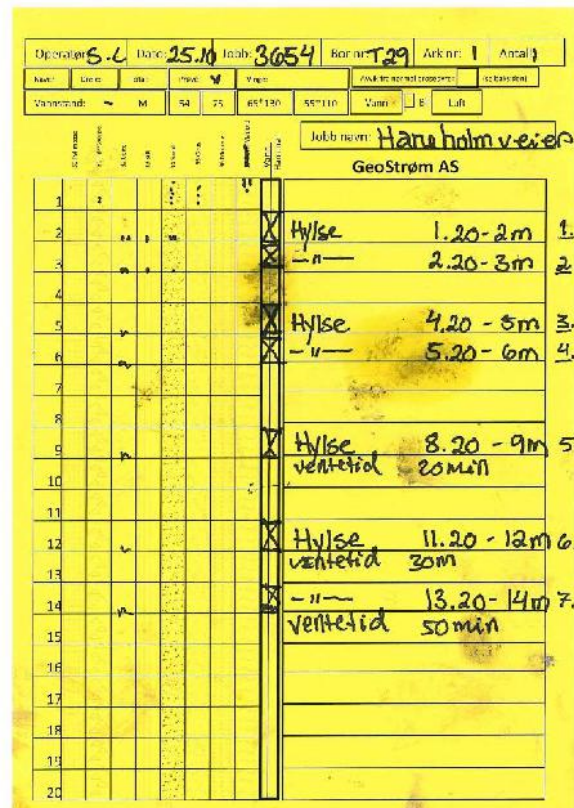 Operatør: S.L Dato: 25.10 Jobb: 3654 Bor nr: T29 Ark nr: 1 Antall 1
Vannstand: ~ M 54 75 65*130 55*110 Vann B Luft
Jobb navn: Haneholmveien
GeoStrøm AS
1
2 Hylse 1.20-2m 1.
3 -"- 2.20-3m 2
4
5 Hylse 4.20-5m 3.
6 -"- 5.20-6m 4.
7
8
9 Hylse 8.20-9m 5
ventetid 20min
10
11
12 Hylse 11.20-12m 6.
ventetid 30m
13
14 -"- 13.20-14m 7.
ventetid 50min
15
16
17
18
19
20